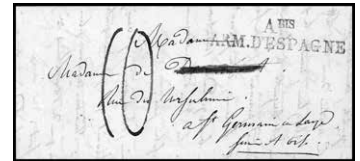 A BIS
ARM. D'ESPAGNE
à Madame
Madame de
Rue des Ursulines
a St Germain en Laye